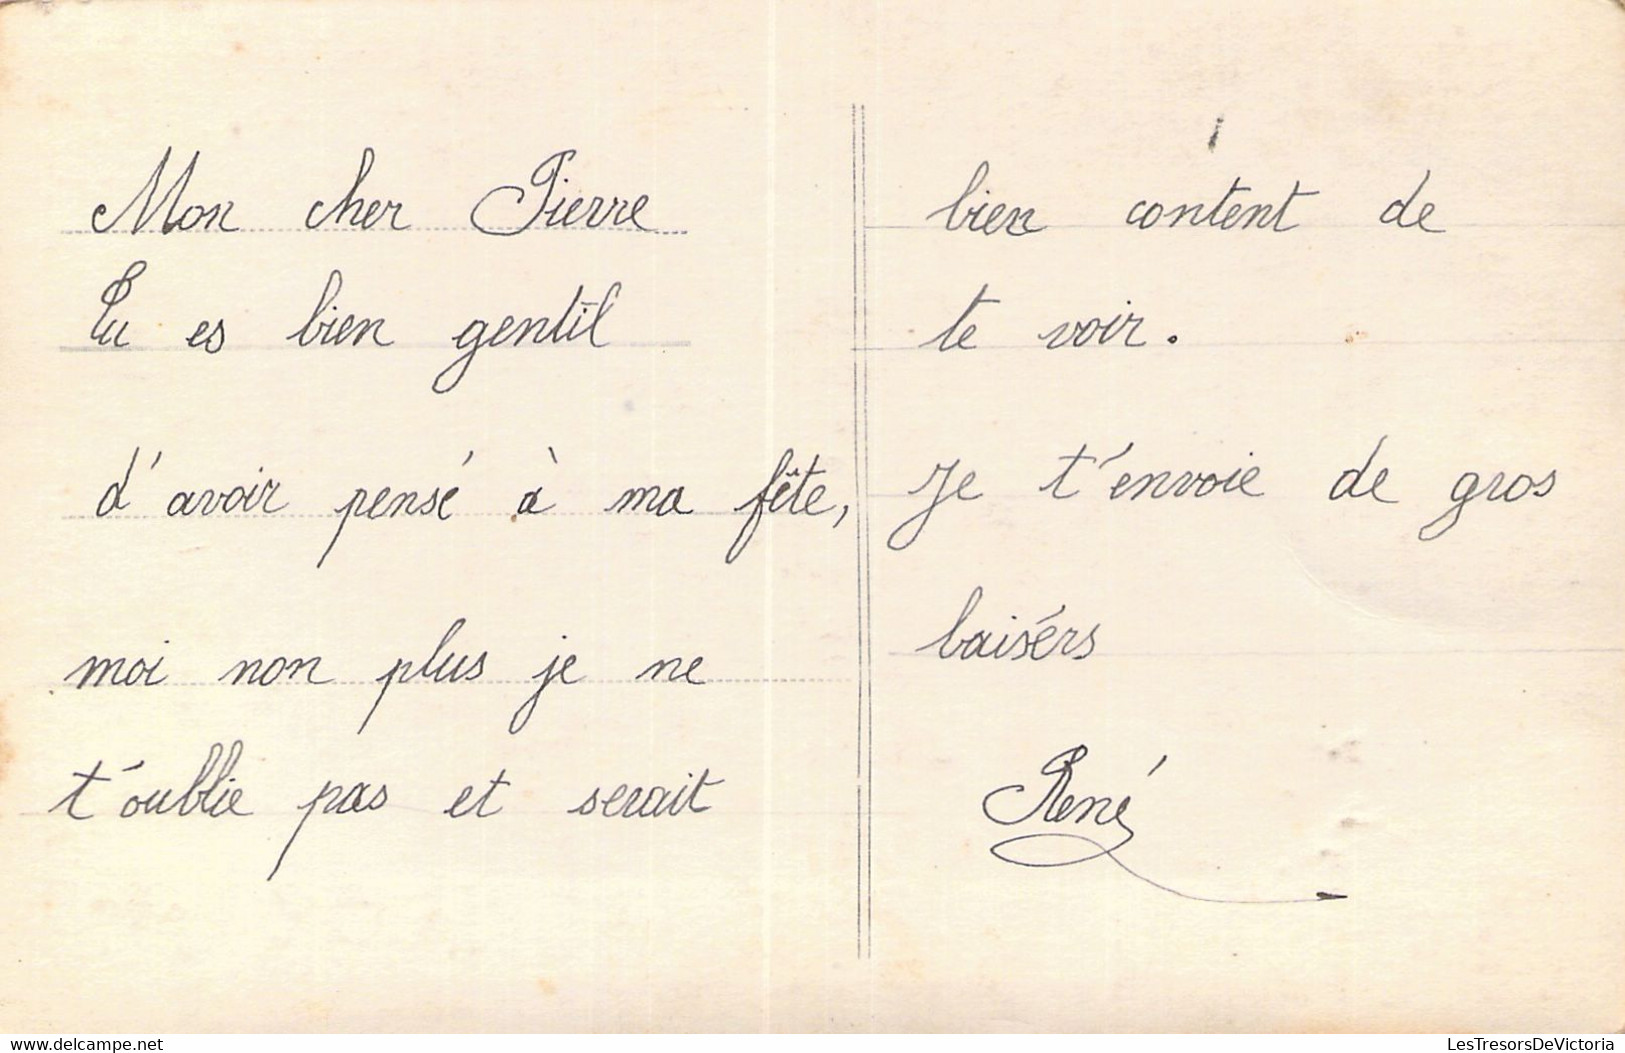 Mon cher Pierre
Tu es bien gentil
d'avoir pensé à ma fête,
moi non plus je ne
t'oublie pas et serait
bien content de
te voir.
Je t'envoie de gros
baisérs
René
www.delcampe.net
LesTresorsDeVictoria